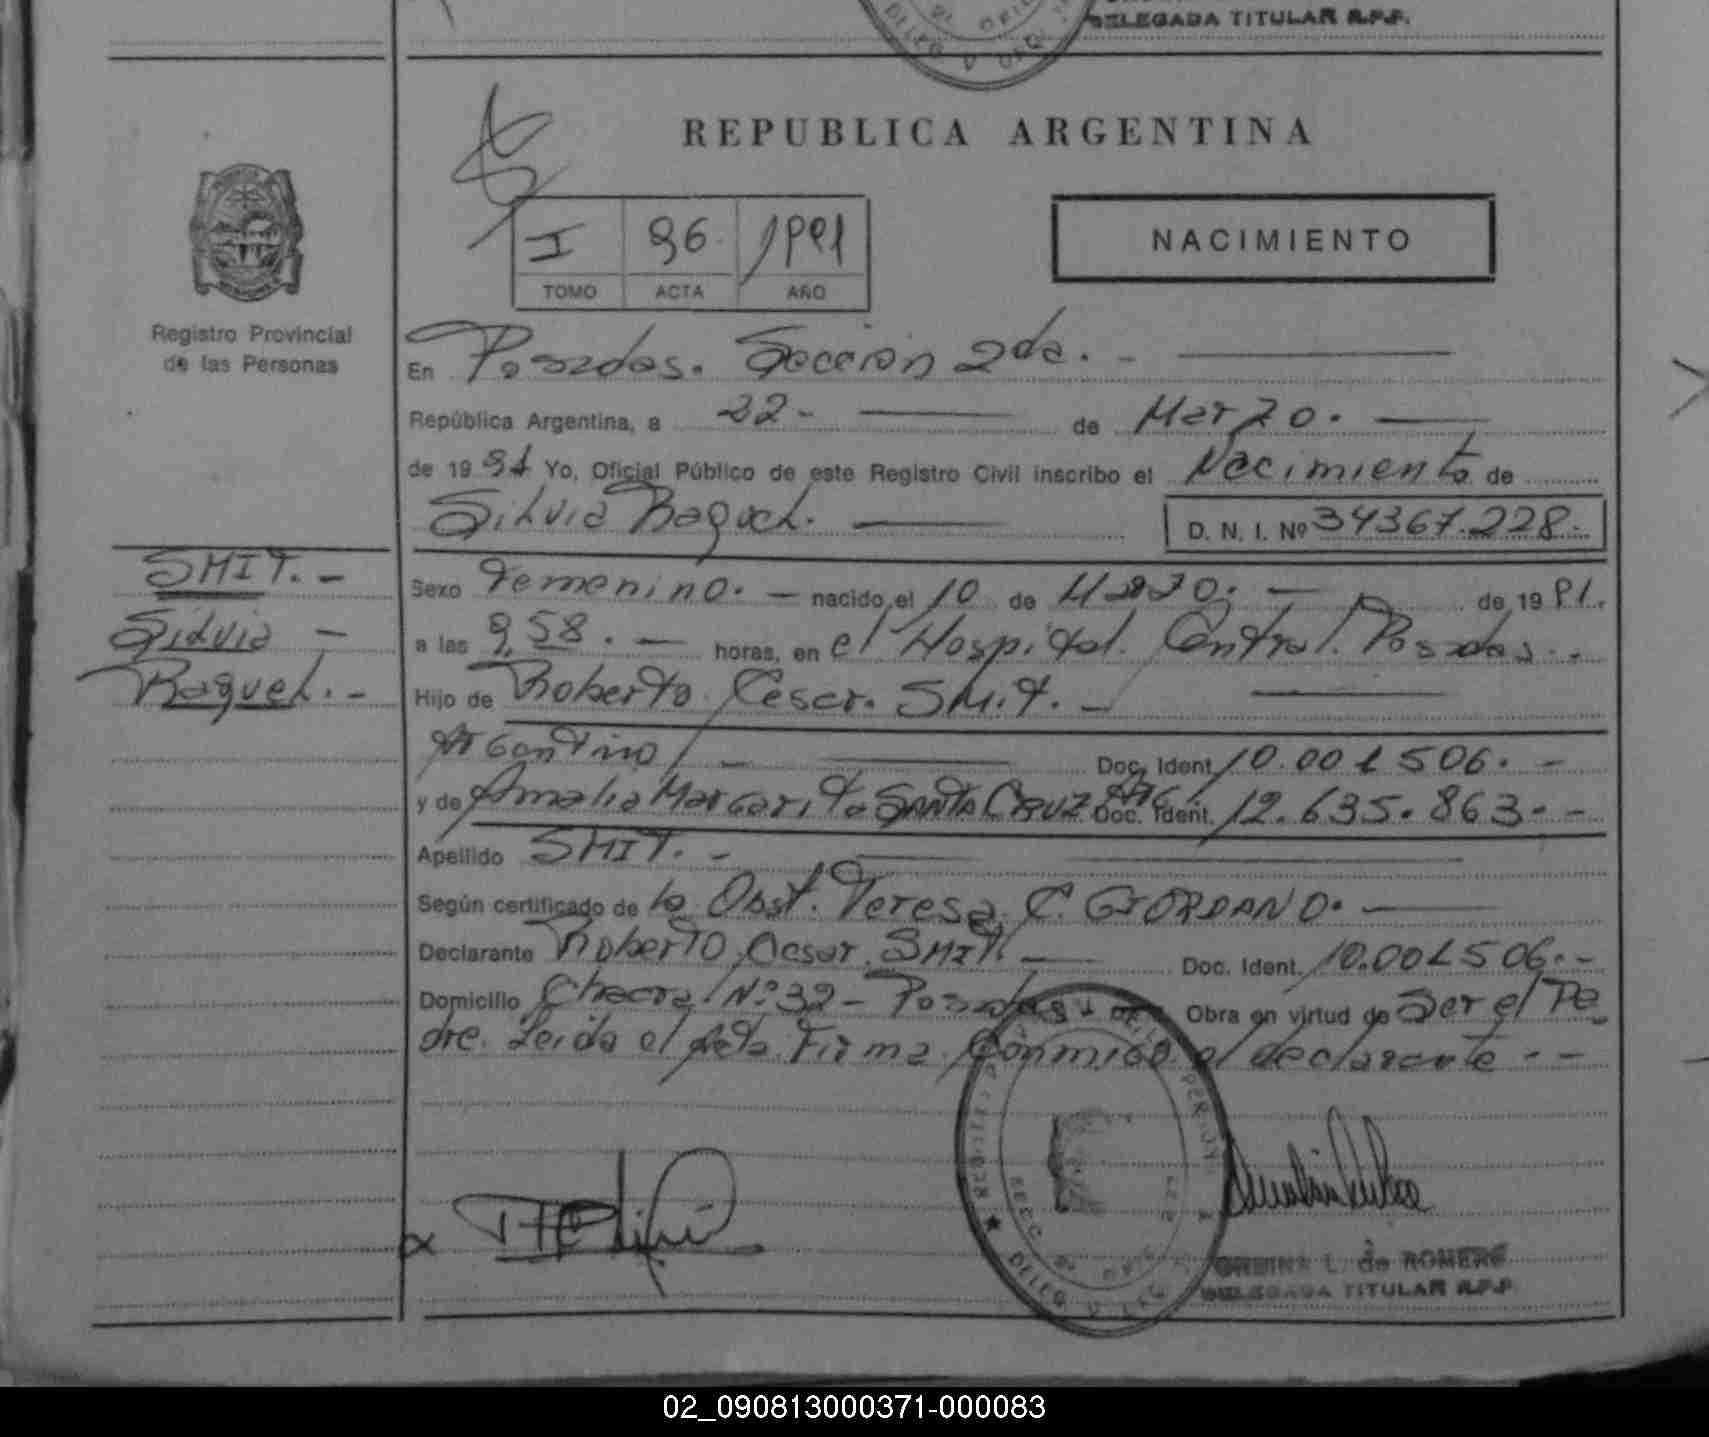 DELEGADA TITULAR R.P.P.
REPUBLICA ARGENTINA
I 96 1991
TOMO ACTA AÑO
NACIMIENTO
Registro Provincial
de las Personas
En Posadas. Sección 2da. -
República Argentina, a 22- de Marzo.
de 1991 Yo, Oficial Público de este Registro Civil inscribo el Nacimiento de
Silvia Raquel. D. N. I. Nº 34367.228.
SMIT. -
Silvia -
Raquel. -
Sexo Femenino. - nacido el 10 de Marzo. - de 1991.
a las 9,58. - horas, en el Hospital Central. Posadas. -
Hijo de Roberto Cesar. SMIT. -
Argentino - Doc. Ident. 10.001506. -
y de Amalia Margarita SANTA CRUZ Arg. Doc. Ident. 12.635.863. -
Apellido SMIT. -
Según certificado de la Obst. Teresa C. GIORDANO.
Declarante Roberto Cesar SMIT. - Doc. Ident. 10.001506. -
Domicilio Chacra Nº 32 - Posadas Obra en virtud de Ser el Pa
dre. Leida el Acta Firma Conmigo el declarante. -
L. de ROMERO
DELEGADA TITULAR R.P.P.
02_090813000371-000083